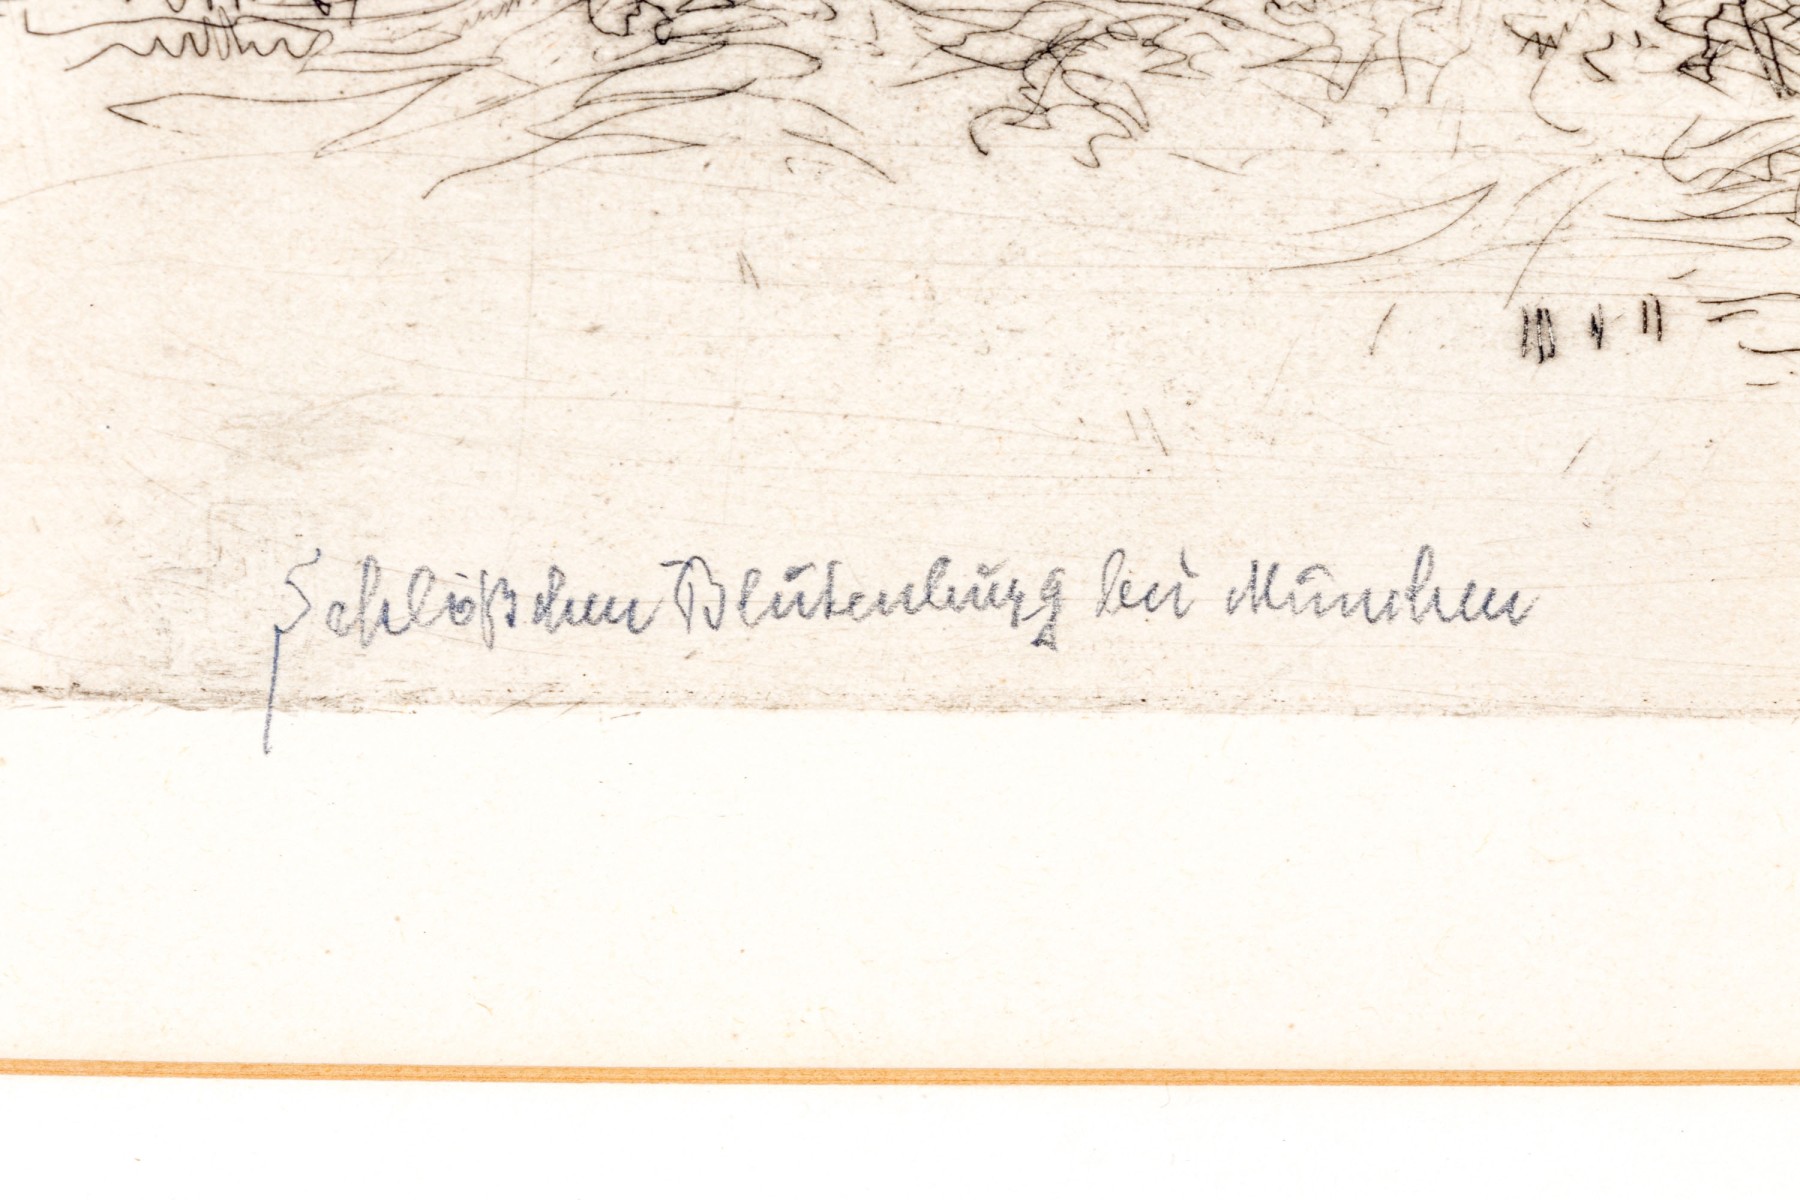 Schlößchen Blütenburg bei München